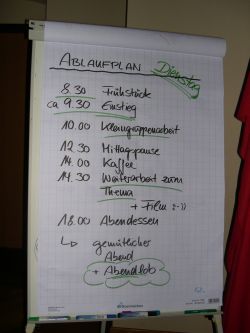 ABLAUFPLAN Dienstag
8.30 Frühstück
ca 9.30 Einstieg
10.00 Kleingruppenarbeit
12.30 Mittagspause
14.00 Kaffee
14.30 Weiterarbeit zum
Thema
+ Film :-))
18.00 Abendessen
↳ gemütlicher
Abend
+ Abendlob